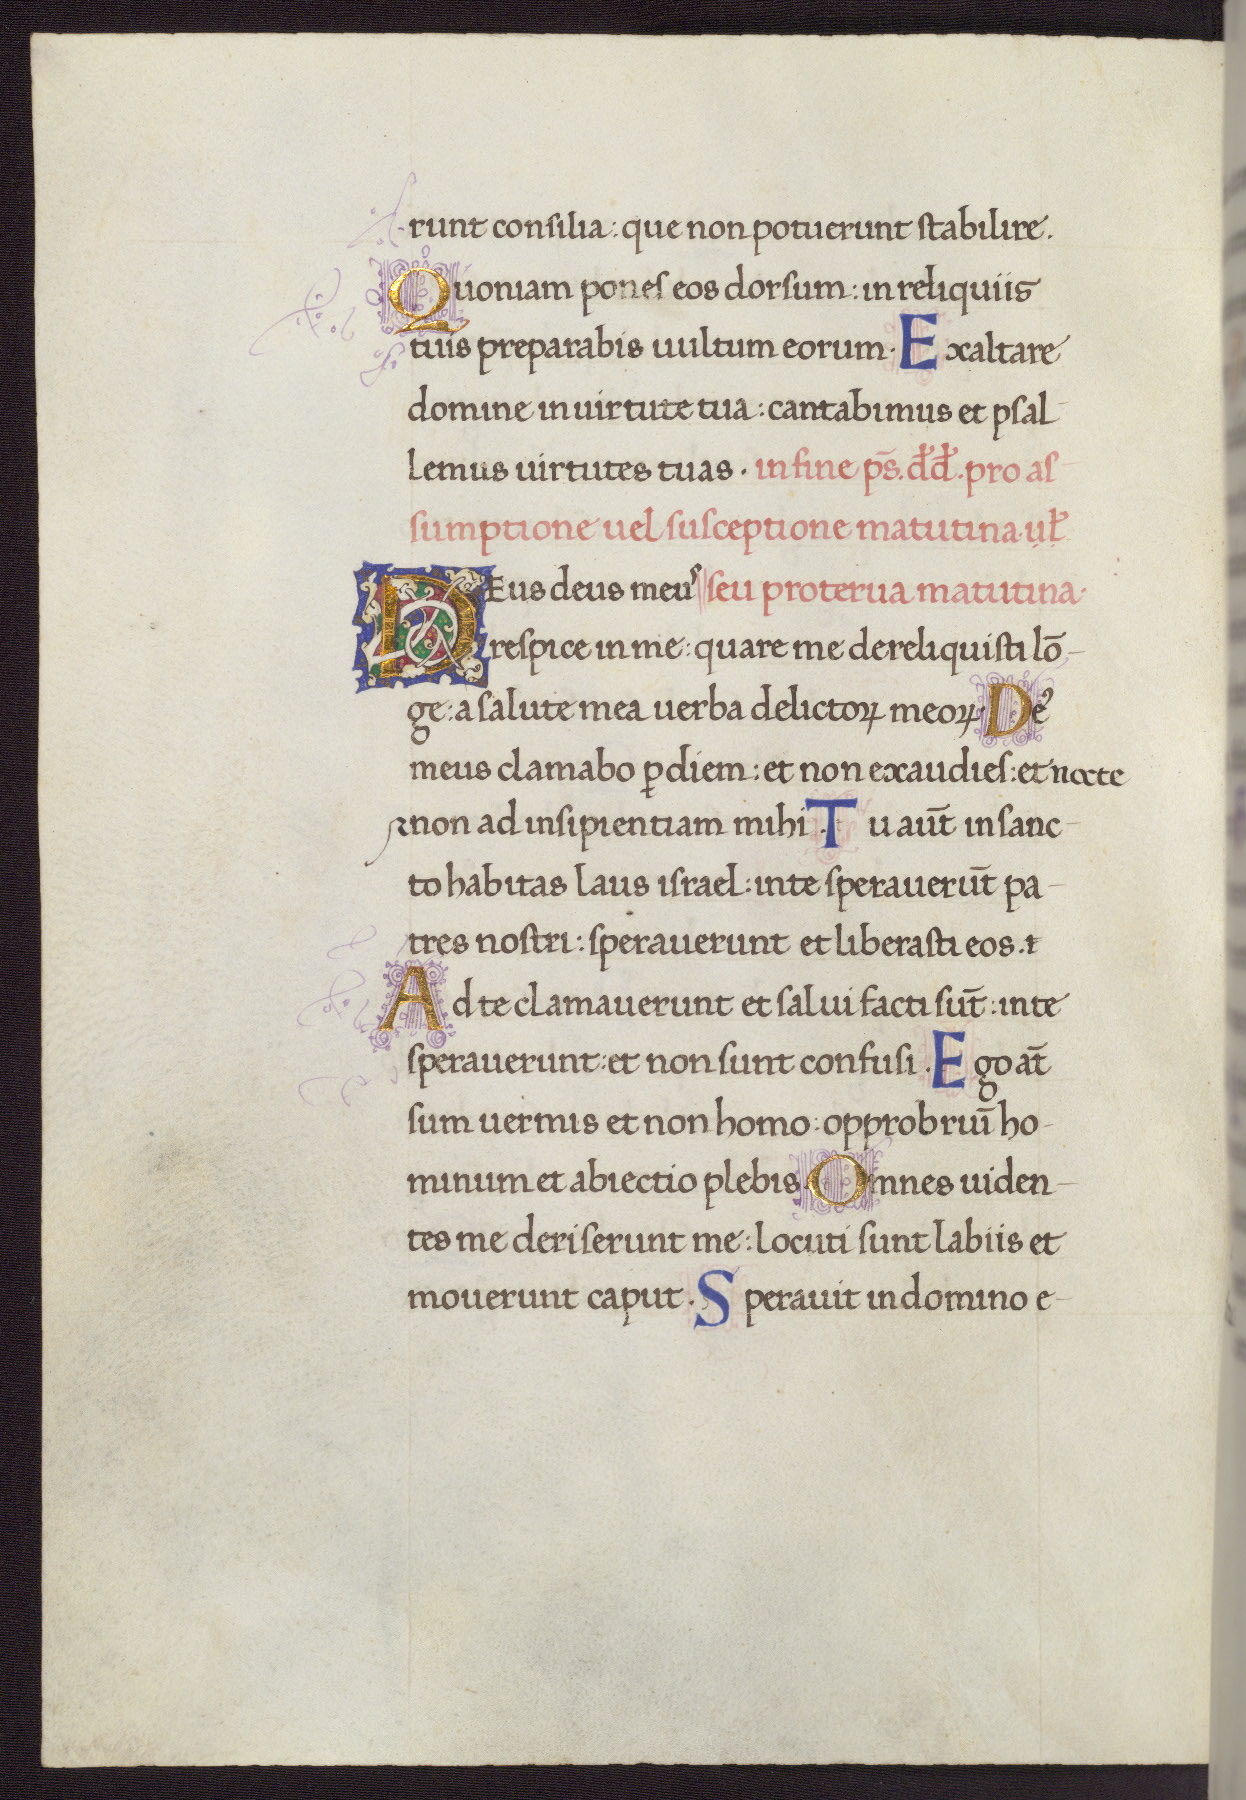 runt consilia: que non potuerunt stabilire.
Quoniam pones eos dorsum: in reliquiis
tuis preparabis uultum eorum. Exaltare
domine in uirtute tua: cantabimus et psal-
lemus uirtutes tuas. in fine ps̄. dd̄. pro as-
sumptione uel susceptione matutina. ul̄
DEus deus meus seu proterua matutina.
respice in me: quare me dereliquisti lō-
ge: a salute mea uerba delictoꝝ meoꝝ. Deꝰ
meus clamabo ꝑ diem: et non exaudies: et nocte
non ad insipientiam mihi. Tu aut̄ in sanc-
to habitas laus israel: in te sperauerūt pa-
tres nostri: sperauerunt et liberasti eos.
Ad te clamauerunt et salui facti sūt: in te
sperauerunt: et non sunt confusi. Ego at̄
sum uermis et non homo: opprobriū ho-
minum et abiectio plebis. Omnes uiden-
tes me deriserunt me: locuti sunt labiis et
mouerunt caput. Sperauit in domino e-